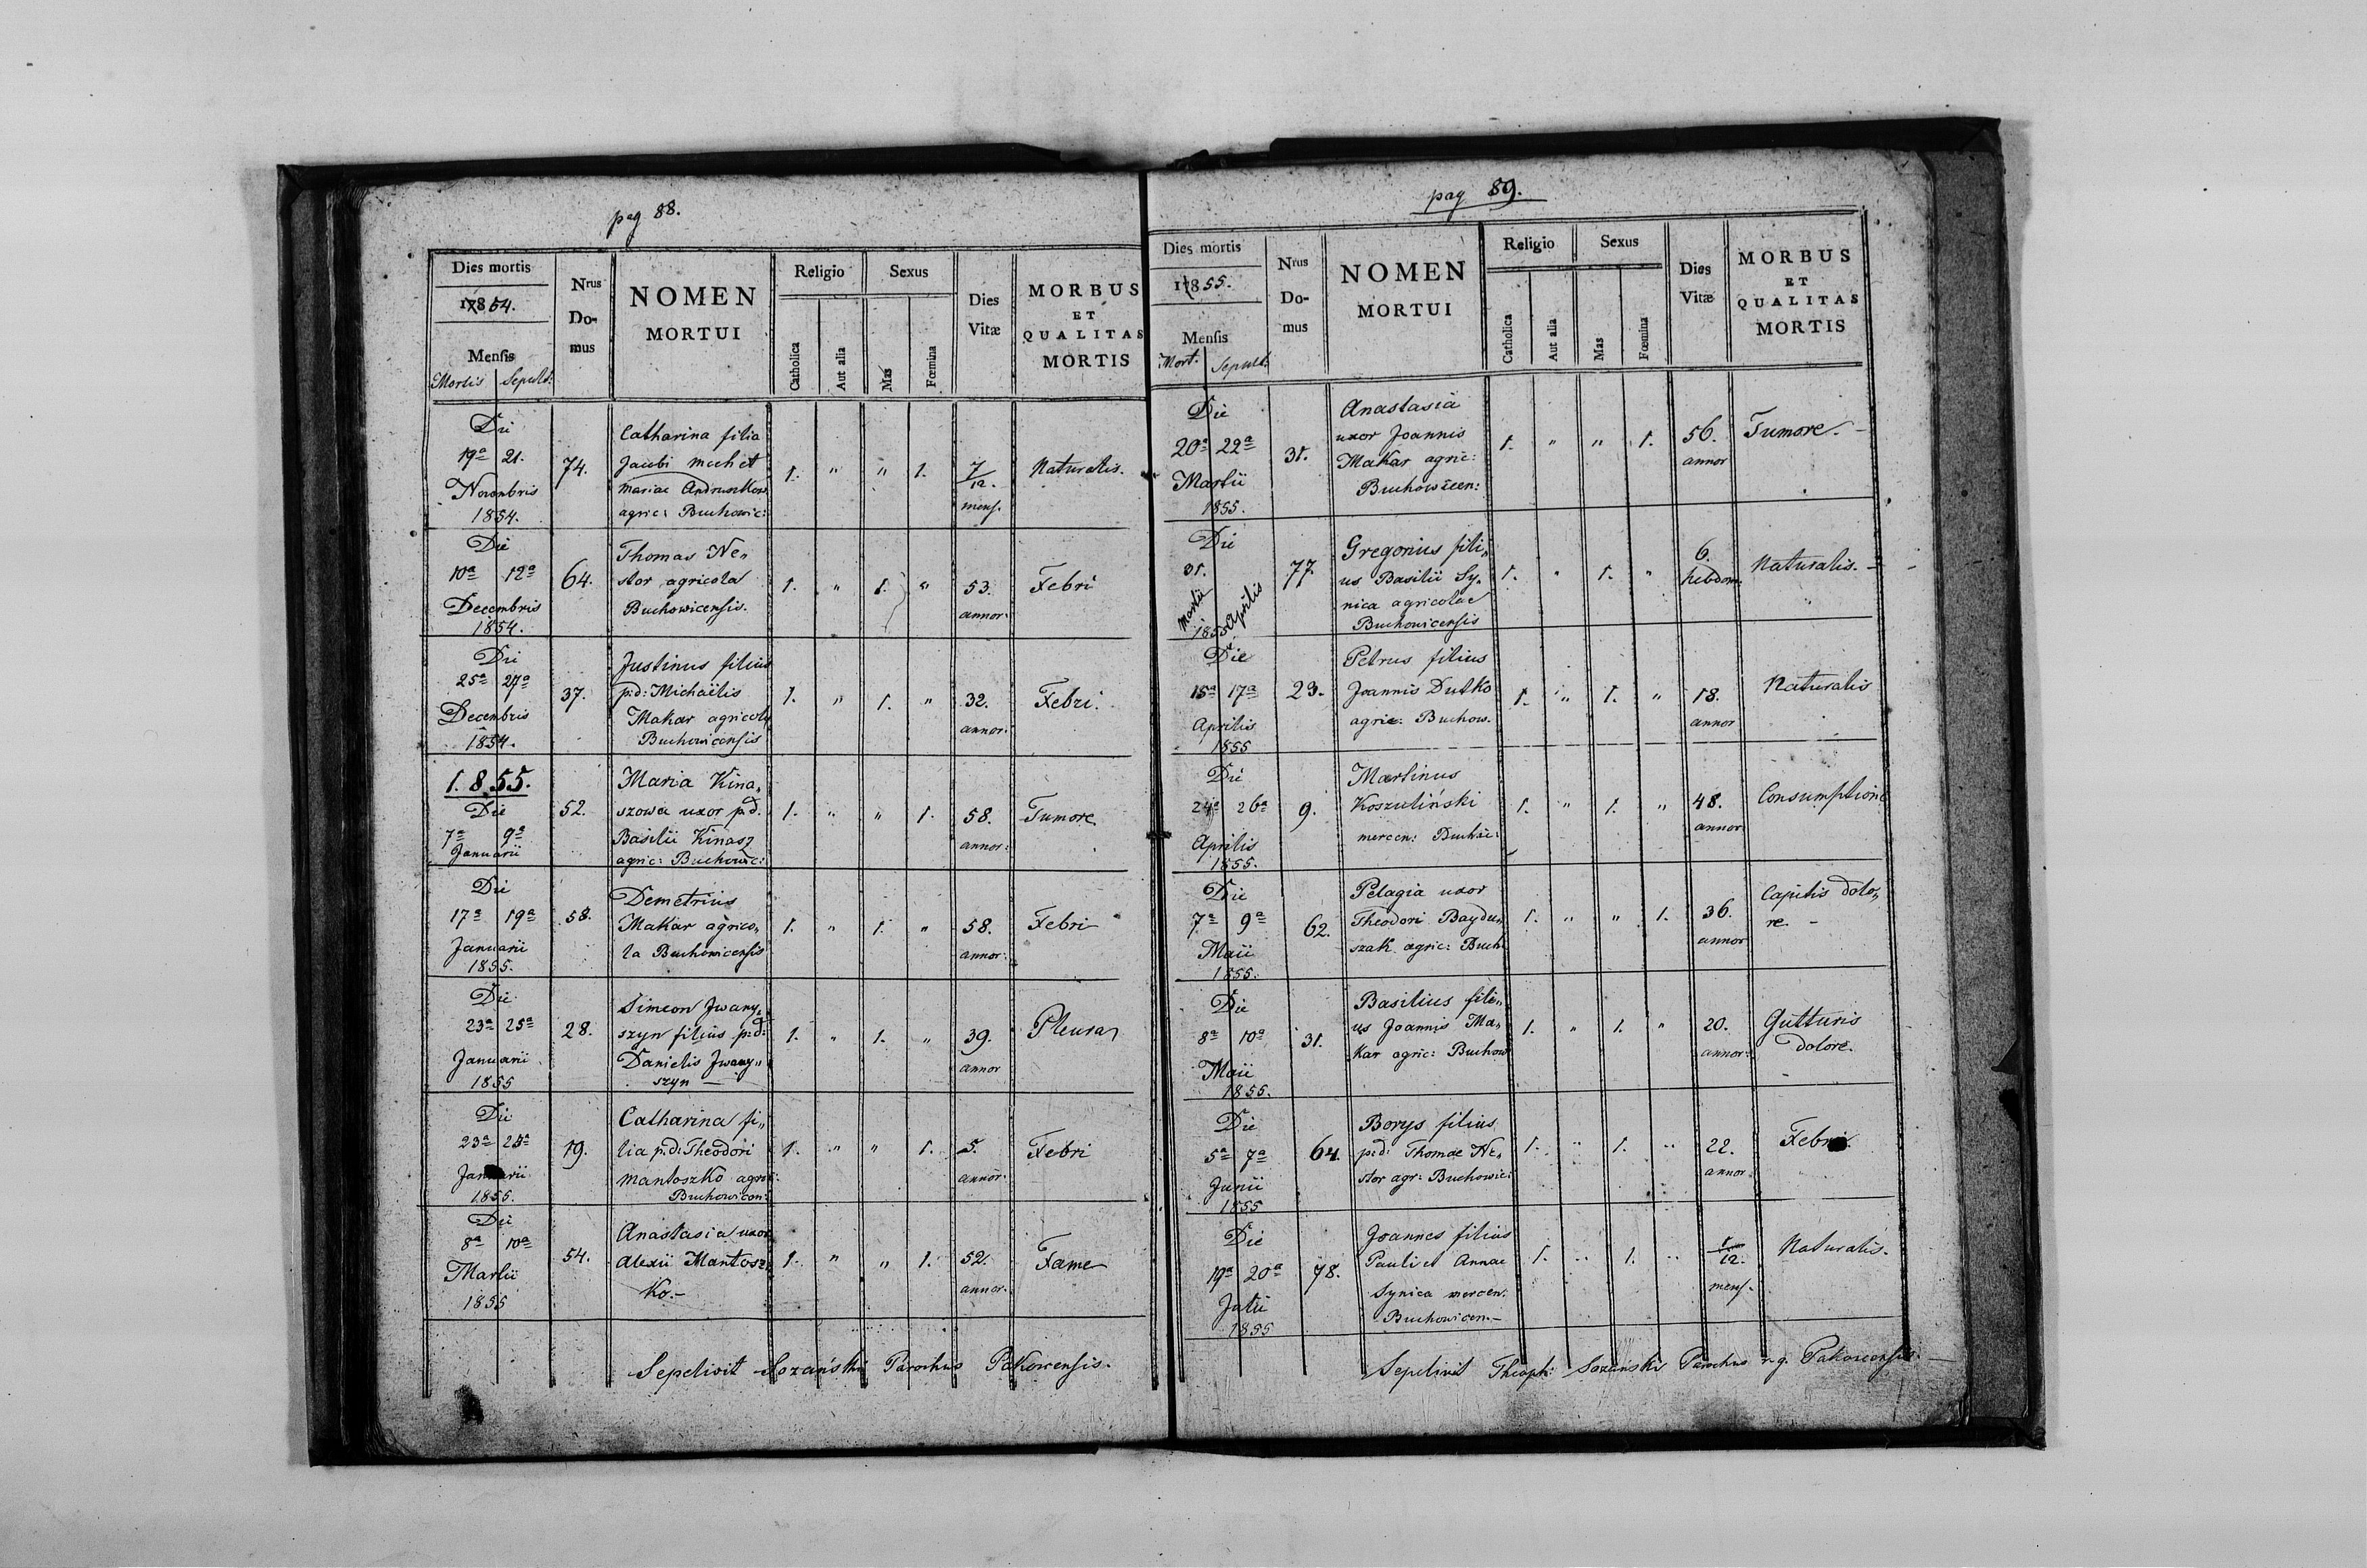 pag 88.
Dies mortis
1854.
Mensis
Mortis Sepult:
Nrus Do-mus
NOMEN MORTUI
Religio
Catholica
Aut alia
Sexus
Mas
Fœmina
Dies Vitæ
MORBUS ET QUALITAS MORTIS
Die
19ª 21.
Novembris
1854.
74.
Catharina filia
Jacobi mech et
mariae Andruszkow
agric: Buchowic:
1. " " 1.
7/12.
mens.
Naturalis.
Die
10ª 12ª
Decembris
1854.
64.
Thomas Ne„
stor agricola
Buchowicensis.
1. " 1. "
53.
annor:
Febri
Die
25ª 27ª
Decembris
1854.
37.
Justinus filius
p.d: Michaëlis
Makar agricola
Buchowicensis
1. " 1. "
32.
annor:
Febri.
1.8.55.
Die
7ª 9ª
Januarii
52.
Maria Kina„
szowa uxor p.d.
Basilii Kinasz
agric: Buchowic:
1. " " 1.
58.
annor:
Tumore
Die
17ª 19ª
Januarii
1855.
58.
Demetrius
Makar agrico„
la Buchowicensis
1. " 1. "
58.
annor:
Febri
Die
23ª 25ª
Januarii
1855
28.
Simeon Jwany„
szyn filius p:d:
Danielis Jwany„
szyn —
1. " 1. "
39.
annor
Pleura
Die
23ª 25ª
Januarii
1855.
19.
Catharina fi„
lia p.d: Theodori
Mantoszko agric:
Buchowicen:
1. " " 1.
5.
annor:
Febri
Die
8ª 10ª
Martii
1855
54.
Anastasia uxor
Alexii Mantosz„
Ko.-
1. " " 1.
52.
annor.
Fame
Sepelivit Sozański Parochus Pakowensis.
pag 89.
Dies mortis
1855.
Mensis
Mort. Sepult:
Nrus Do-mus
NOMEN MORTUI
Religio
Catholica
Aut alia
Sexus
Mas
Fœmina
Dies Vitæ
MORBUS ET QUALITAS MORTIS
Die
20ª 22ª
Martii
1855.
31.
Anastasia
uxor Joannis
Makar agric:
Buchowicen:
1. " " 1.
56.
annor
Tumore. -
Die
31.
Martii Aprilis
1855
77.
Gregorius fili„
us Basilii Sy„
nica agricolae
Buchowicensis
1. " 1. "
6.
hebdom:
Naturalis. -
Die
15ª 17ª
Aprilis
1855
23.
Petrus filius
Joannis Dutko
agric: Buchow.
1. " 1. "
18.
annor
Naturalis
Die
24ª 26ª
Aprilis
1855.
9.
Martinus
Koszuliński
mercen:
1. " 1. "
48.
annor
Consumptione
Die
7ª 9ª
Maii
1855.
62.
Pelagia uxor
Theodori Baydu„
szak agric: Buch:
1. " " 1.
36.
annor
Capitis dolo„
re. -
Die
8ª 10ª
Maii
1855.
31.
Basilius fili„
us Joannis Ma„
kar agric: Buchow
1. " 1. "
20.
annor:
Gutturis
dolore.
Die
5ª 7ª
Junii
1855
64.
Borys filius
p:d: Thomae Ne„
stor agr: Buchowic:
1. " 1. "
22.
annor.
Febri.
Die
19ª 20ª
Julii
1855
78.
Joannes filius
Pauli et Annae
Synica mercen.
Buchowicen.-
1. " 1. "
1/12.
mens.
Naturalis.
Sepelivit Theoph: Sozanski Parochus r. g. Pakowensis.